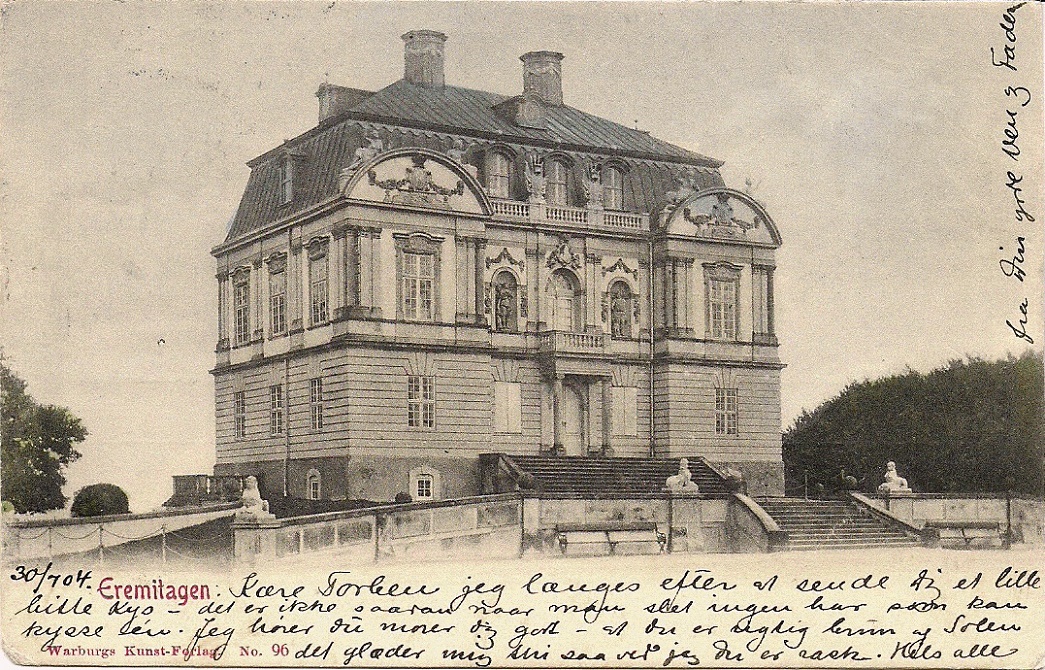 30/7 04. Eremitagen Kære Torben jeg længes efter at sende Dig et lille
bitte Kys – det er ikke saaran naar man slet ingen har som kan
kysse én. Jeg hører Du morer Dig godt – at Du er rigtig brun af Solen
Warburgs Kunst-Forlag No. 96 det glæder mig saa ved jeg Du er rask. Hils alle
fra Din gode Ven & Fader